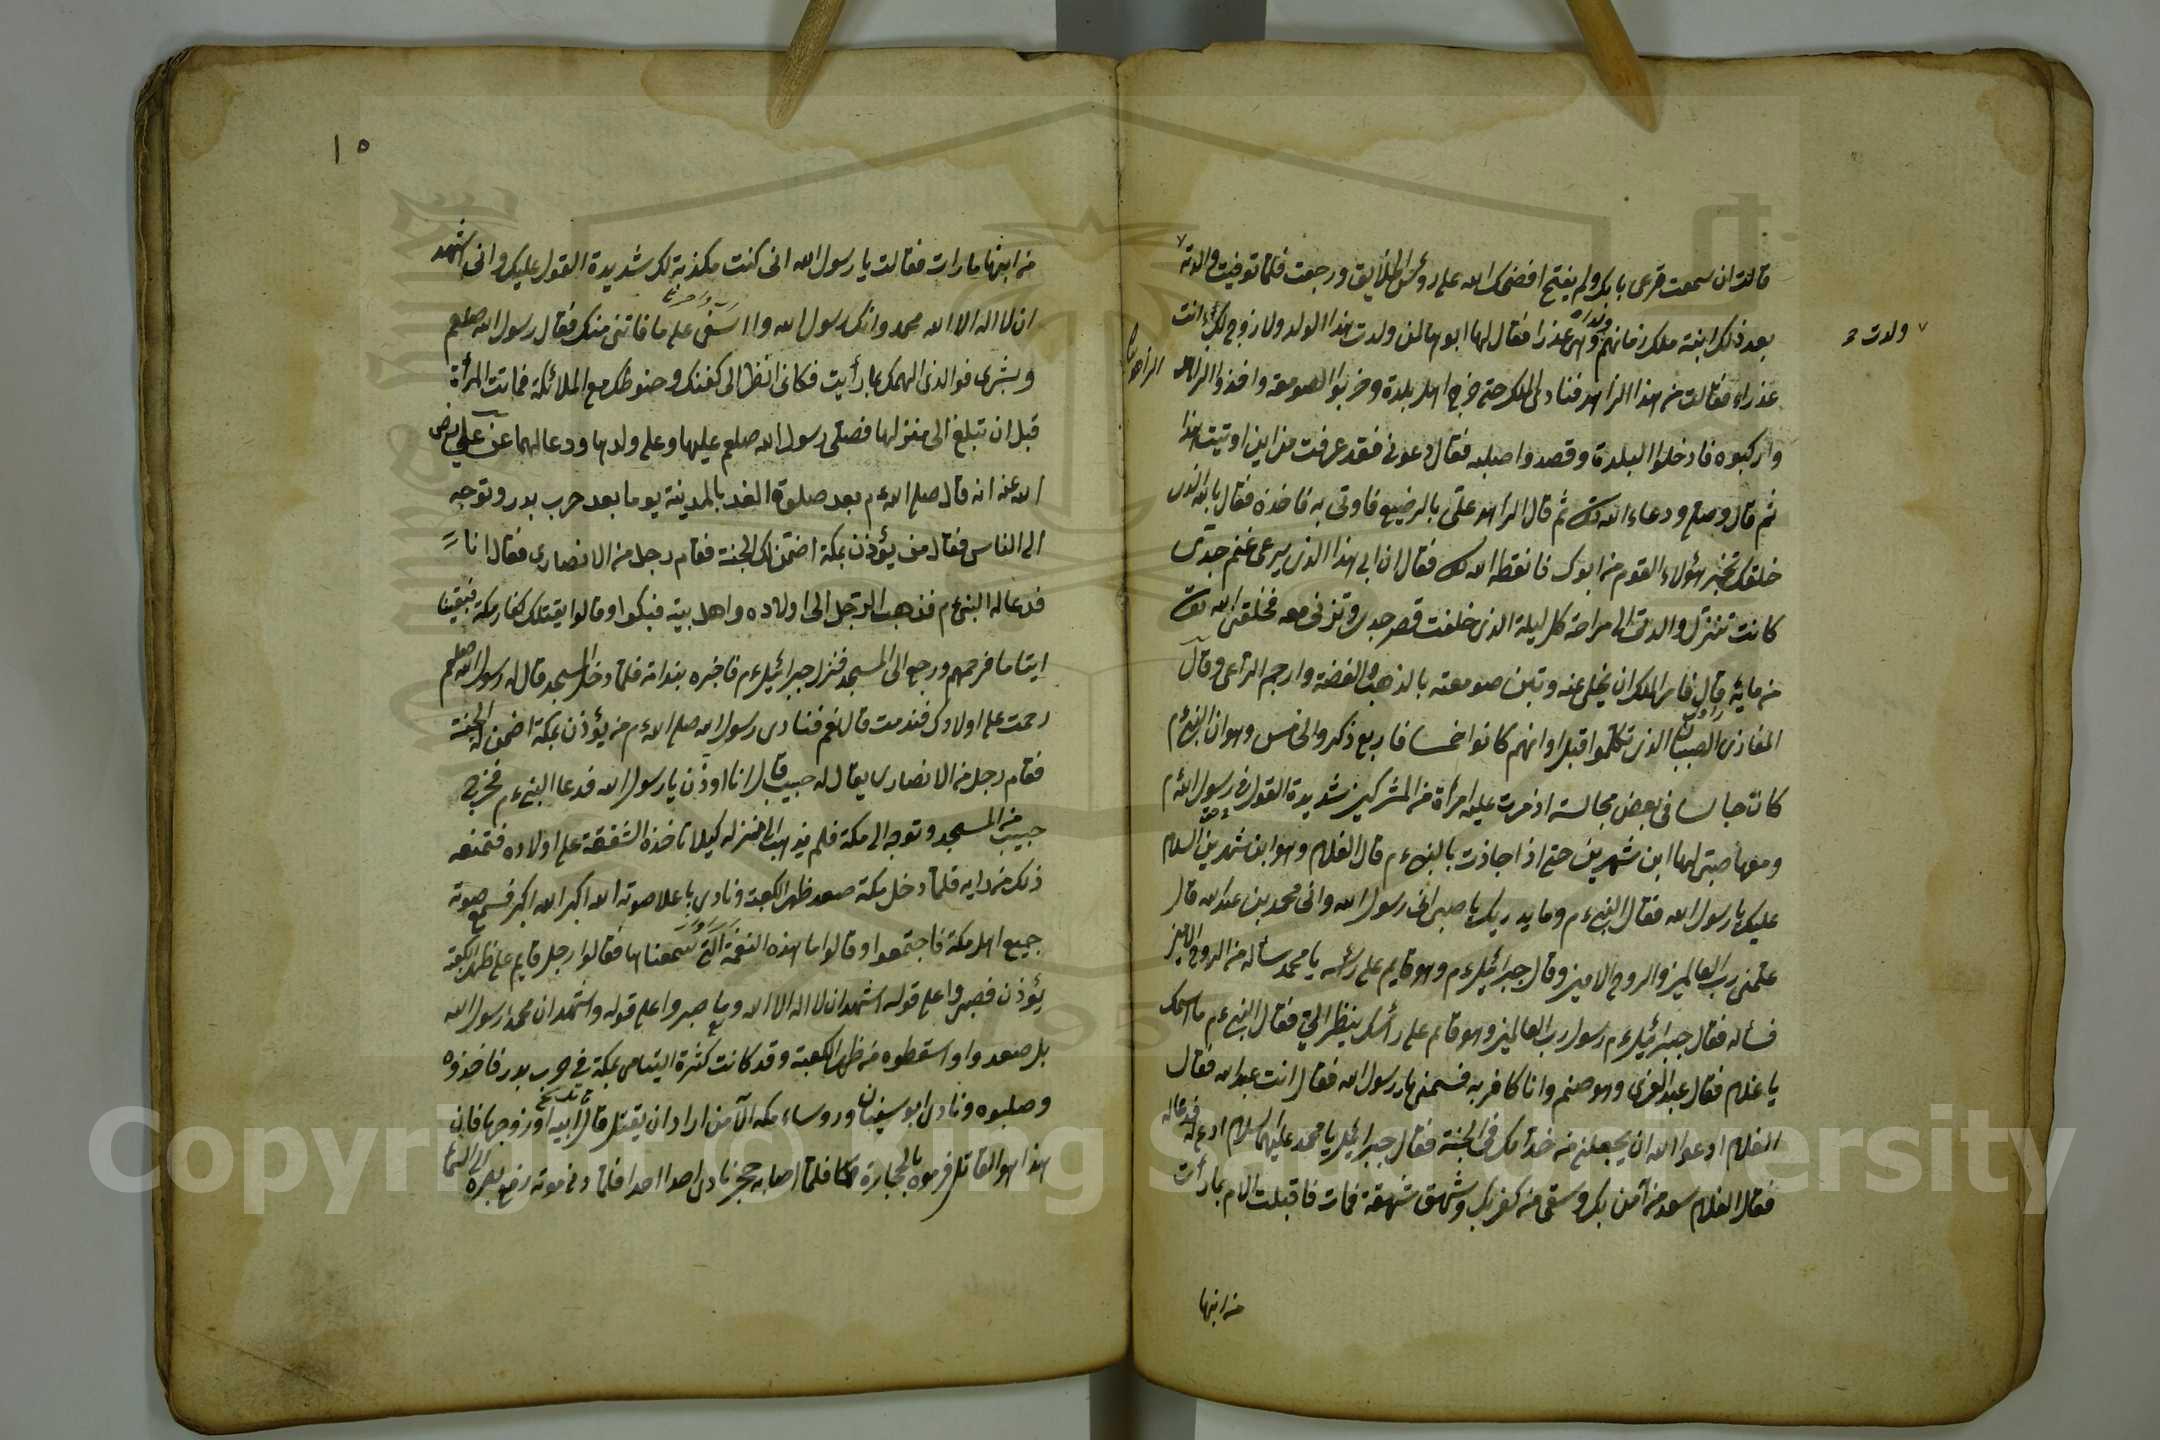 قالت ان سمعت قرعى بابك ولم يفتح افضحك الله على رؤس الخلايق ورجعت فلما توفيت والدته
بعد ذلك ابنة ملك زمانهم وهى عذراء فقال لها ابوها لمن ولدت هذا الولد ولا زوج لك انت
ولدت
عذراء فقالت من هذا الزاهد فنادى الملك حتى خرج اهل بلدة وخربوا الصومعة واخذوا الراهب
واركبوه فادخلوا البلدة وقصدوا صلبه فقال دعونى فقد عرفت من اين اوتيت هذا
ثم قال وصلى ودعاء الله ثم قال الراهب علىّ بالرضيع فاوتى به فاخذه فقال بالله الذى
خلقك تخبر هؤلاء القوم من ابوك فانطقه الله فقال ان ابى هذا الذى يرعى غنم جدتى
كانت تنزل والدتى الى مراحه كل ليلة الذى خلفت قصر جدى وتزنى معه فخلقنى الله تعا
من مائه قال فامر الملك ان يخلى عنه وتبنى صومعته بالذهب والفضة وارجم الراعى وقال
المغازى الصبيان الذى تكلموا قبل اوانهم كانوا خمسا فاربع ذكروا الخمس وهو ان النبى ءم
كان جالسا فى بعض مجالسه اذ مرت عليه امرأة من المشركين شديدة القول فى رسول الله ءم
ومعها صبى لها ابن شهرين حتى اذا جاذت بالنبى ءم قال الغلام وهو ابن شهرين السلام
عليك يا رسول الله فقال النبى ءم وما يدريك يا صبى انى رسول الله وانى محمد بن عبد الله قال
علمنى رب العالمين والروح الامين وقال جبرائيل ءم وهو قايم على رأسه يا محمد سأله من الروح الامين
فسأله فقال جبرائيل ءم رسول رب العالمين وهو قايم على رأسك ينظر الىّ فقال النبى ءم ما اسمك
يا غلام فقال عبد العزى وهو صنم وانا كافر به فسمنى يا رسول الله فقال انت عبد الله فقال
الغلام ادعو الله ان يجعلنى من خدامك فى الجنة فقال جبرائيل يا محمد عليهما السلام ادع له فدعا له
فقال الغلام سعد من آمن بك وشقى من كفر بك وشهق شهقة فمات فاقبلت الام بما رأت
من ابنها
١٥
من ابنها ما رات فقالت يا رسول الله انى كنت مكذبة لك شديدة القول عليك وانى اشهد
ان لا اله الا الله محمد وانك رسول الله وا اسفى على ما فاتنى منك فقال رسول الله صلعم
وبشرى فوالذى الهمك بما رأيت فكانى انظر الى كفنك وحنوطك مع الملائكة فماتت المرأة
قبل ان تبلغ الى منزلها فصلى رسول الله صلعم عليها وعلى ولدها ودعا لهما عن على رضى
الله عنه انه قال صلى الله ءم بعد صلوة الغد بالمدينة يوما بعد حرب بدر وتوجه
الى الناس فقال من يؤذن بمكة اضمن لك الجنة فقام رجل من الانصارى فقال انا
فدعا له النبى ءم فذهب الرجل الى اولاده واهل بيته فبكوا وقالوا يقتلك كفار مكة فبقينا
ايتاما فرحمهم ورجع الى المسجد فنزل جبرائيل ءم فاخبره بندامة فلما دخل المسجد قال له رسول الله صلعم
رحمت على اولادك فندمت قال نعم فنادى رسول الله صلى الله ءم من يؤذن بمكة اضمن له الجنة
فقام رجل من الانصارى يقال له حبيب قال انا اوذن يا رسول الله فدعا النبى ءم فخرج
حبيب من المسجد وتوجه الى مكة فلم يذهب الى منزله كيلا تاخذه الشفقة على اولاده فتمنعه
ذلك من رايه فلما دخل مكة صعد ظهر الكعبة ونادى باعلا صوته الله اكبر الله اكبر فسمع صوته
جميع اهل مكة فاجتمعوا وقالوا ما هذه النغمة التى سمعناها فقالوا رجل قايم على ظهر الكعبة
يؤذن فصبروا على قوله اشهد ان لا اله الا الله صبروا على قوله واشهد ان محمد رسول الله
بل صعدوا واسقطوه من ظهر الكعبة وقد كانت كثرة اليتامى بمكة فى حرب بدر فاخذوه
وصلبوه ونادى ابو سفيان وروساء مكه الا من اراد ان يقتل قاتل ابيه او زوجها فان
هذا هو القاتل فرموه بالحجارة فلما اصابه حجر نادى احدا احدا فلما دنى موته رفع بصره الى السماء